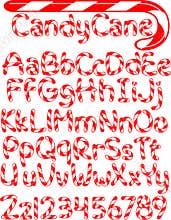 CandyCane
AaBbCcDdEe
FfGgHhIiJj
KkLlMmNnOo
PpQqRrSsTt
UuVvWwXxYy
Zz123456789